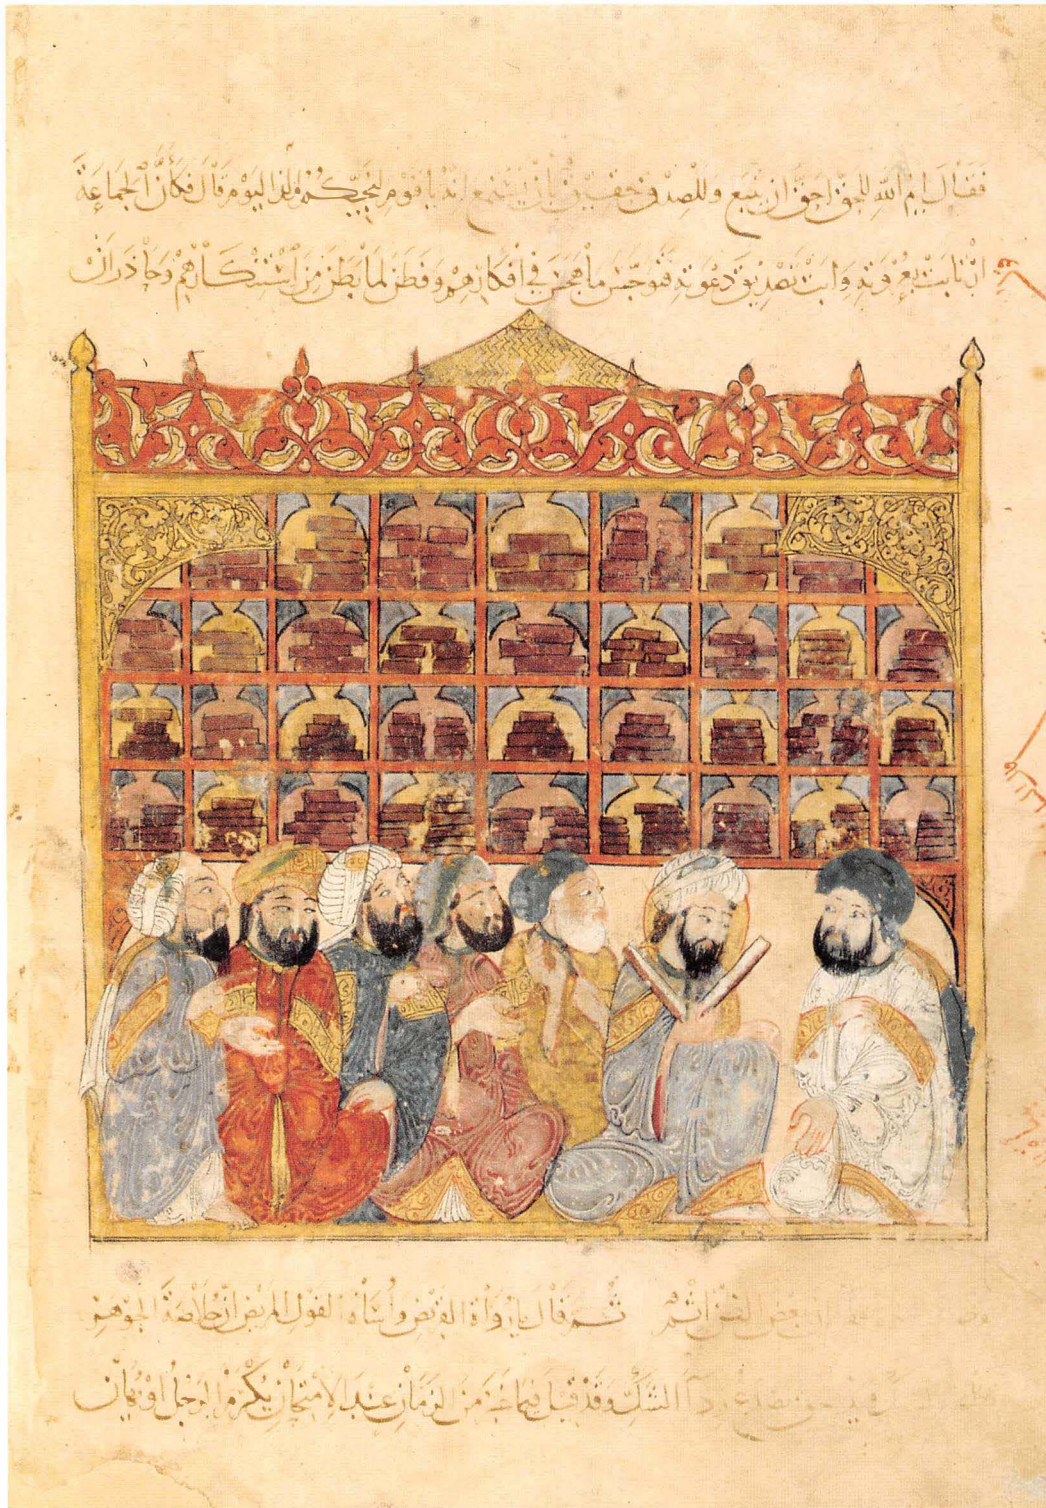 فقال ايم الله للحق احق ان يتبع وللصدق حقيق بان يستمع انه يا قوم لنجيكم اليوم قال فكأن الجماعة
ارتابت بعزوته وابت تصديق دعوته فتوجس ما هجس في افكارهم وفطن لما بطن من استنكارهم وحاذر ان
ان بعض الظن اثم ثم قال يا رواة القريض واساة القول المريض ان خلاصة الجوهر
الحق تصدع ردآ الشك وقد قيل فيما غبر من الزمان عند الامتحان يكرم الرجل او يهان